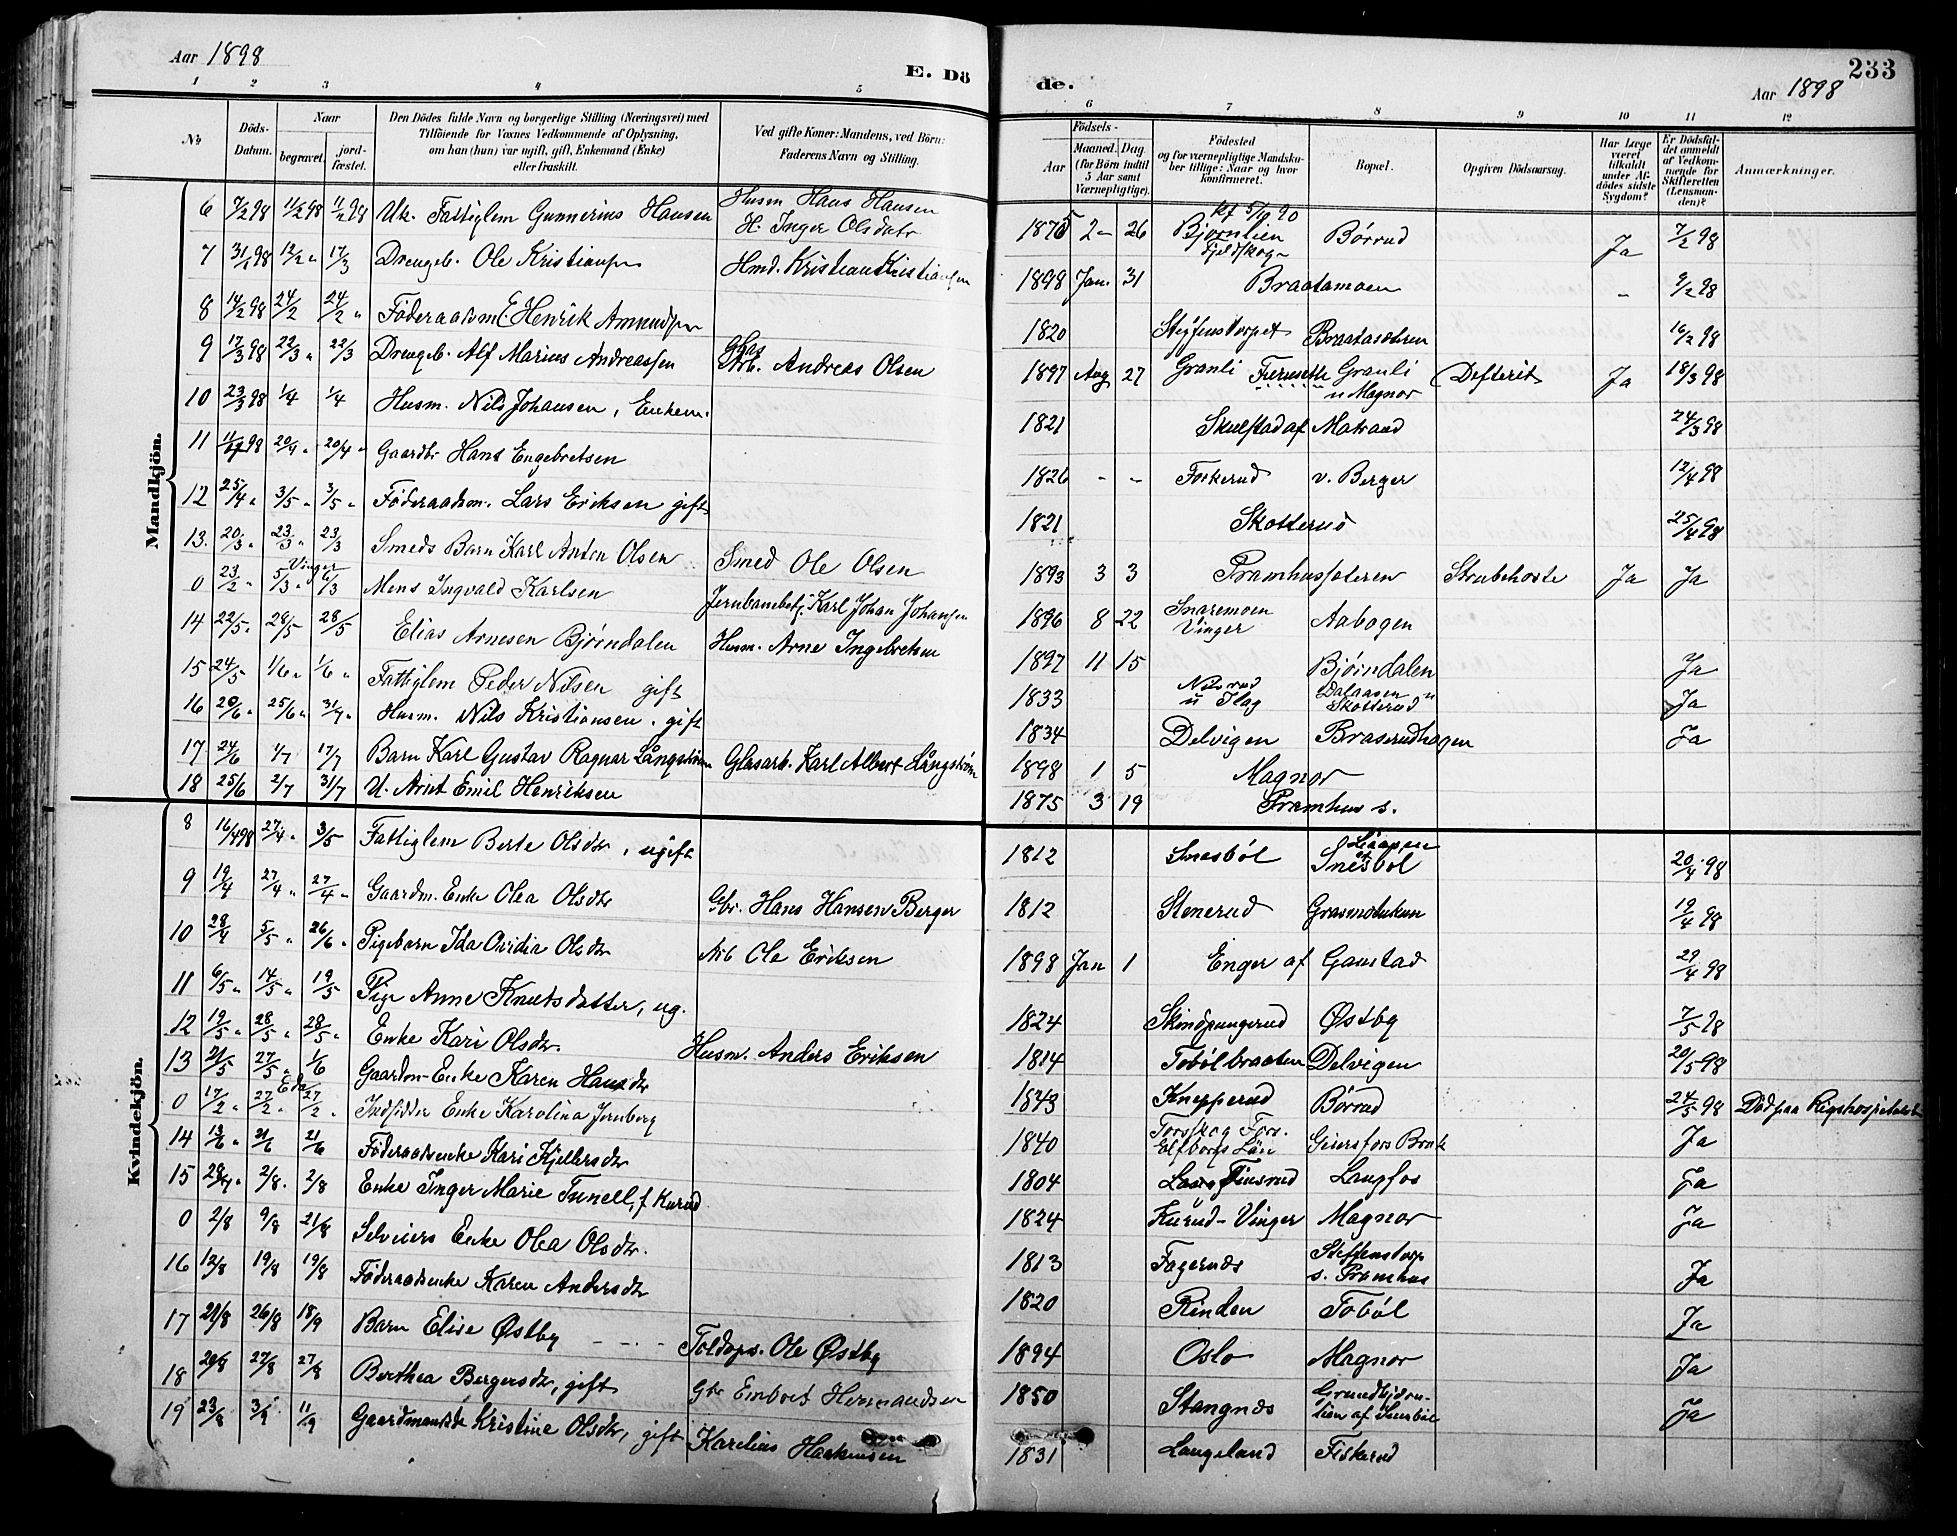 Aar 1898
E. Dö
de.
Aar 1898
233
1 2 3 4 5 6 7 8 9 10 11 12
No
Döds-Datum.
Naar
begravet.
jord-fæstet.
Den Dödes fulde Navn og borgerlige Stilling (Næringsvei) med
Tilföiende for Voxnes Vedkommende af Oplysning,
om han (hun) var ugift, gift, Enkemand (Enke)
eller fraskilt.
Ved gifte Koner: Mandens, ved Börn:
Faderens Navn og Stilling.
Födsels-
Aar
Maaned. Dag
(for Börn indtil
5 Aar samt
Værnepligtige).
Födested
og for værnepligtige Mandska-
ber tillige: Naar og hvor
konfirmeret.
Bopæl.
Opgiven Dödsaarsag.
Har Læge
været
tilkaldt
under Af-
dödes sidste
Sygdom?
Er Dödsfal-
det anmeldt
af Vedkom-
mende for
Skifteretten
(Lensman-
den)?
Anmærkninger.
Mandkjön.
6 7/2 98 11/2 98 11/2 98 Uk. Fattiglem Gunnerius Hansen Husm Hans Hansen H. Inger Olsdatr 1875 2 26 kf 5/10 90 Bjørnlien Fjeldskogn Børrud Ja 7/2 98
7 31/1 98 12/2 " 17/3 Drengeb. Ole Kristiansen Hmd. Kristian Kristiansen 1898 Jan. 31 Braatamoen - 9/2 98
8 14/2 98 24/2 24/2 " Føderaadsm. E Henrik Amundsen 1820 Steffenstorpet Braatasæteren 16/2 98
9 17/3 98 22/3 " 22/3 Drengeb. Alf Marius Andreassen Glas Arb. Andreas Olsen 1897 Aug 27 Granli Granli u Magnor Defterit Ja 18/3 98
10 23/3 98 1/4 1/4 Husm. Nils Johansen, Enkem. 1821 Skulstad af Matrand 24/3 98
11 11/4 98 20/4 " 20/4 " Gaardbr Hans Engebretsen 1826 - - Forkerud v. Berger 12/4 98
12 25/4 " 3/5 " 3/5 " Føderaadsm. Lars Eriksen gift 1821 Skotterud 25/4 98
13. 20/3 " 23/3 " 23/3 Smeds Barn Karl Anton Olsen Smed Ole Olsen 1893 3 3 Pramhussæteren Strubehoste Ja Ja
0 23/2 " 5/3 " Vinger 6/3 Mons Ingvald Karlsen Jernbanebetj. Karl Johan Johansen 1896 8 22 Snaremoen Vinger Aabogen
14 22/5 " 28/5 28/5 Elias Arnesen Bjørndalen Husm. Arne Ingebretsen 1897 11 15 Bjørndalen Ja
15 24/5 1/6 " 1/6 " Fattiglem Peder Nilsen gift 1833 Nilsrud u Flag Dalaasen u Skotterud Ja
16 20/6 " 25/6 " 31/7 " Husm. Nils Kristiansen. gift 1834 Delvigen Braserudhagen Ja
17 24/6 1/7 17/7 Barn Karl Gustav Ragnar Långström Glasarb. Karl Albert Långström 1898 1 5 Magnor
18 25/6 2/7 31/7 U. Arnt Emil Henriksen 1875 3 19 Pramhus s.
Kvindekjön.
8 16/4 98 27/4 " 3/5 Fattiglem Berte Olsdtr, ugift 1812 Snesbøl Snesbøl 20/4 98
9 19/4 27/4 " 27/4 " Gaardm. Enke Olea Olsdtr Gbr. Hans Hansen Berger 1812 Stenerud 19/4 98
10 28/4 5/5 " 26/6 " Pigebarn Ida Ovidia Olsdtr Arb Ole Eriksen 1898 Jan 1 Enger af Gaustad 29/4 98
11 6/5 " 14/5 " 19/5 Pige Anne Knutsdatter, ug. 1824 Skindpungerud Østby 7/5 98
12 19/5 " 28/5 " 28/5 " Enke Kari Olsdtr. Husm. Anders Eriksen 1814 Tobølbraaten Delvigen 20/5 98
13 21/5 27/5 " 1/6 Gaardm-Enke Karen Hansdtr 1843 Knepperud Børrud 24/5 98 Död paa Rigshospitalet
0 17/2 " 27/2 " Eda 27/2 " Indsidder Enke Karolina Jernberg 1840 Torsskog Fors. Elfsborgs Län Geiersfors Bruk Ja
14 13/6 " 21/6 21/6 Føderaadsenke Kari Kjellersdtr 1804 Lang Finsrud Langfos Ja
15 28/7 " 2/8. 2/8 Enke Inger Marie Tunell, f Kurud 1824 Kurud-Vinger Magnor Ja
0 2/8 9/8 21/8 Selveiers Enke Olea Olsdtr. 1813 Fagernæs Steffenstorp s. Pramhus Ja
16 12/8 19/8 19/8 Føderaadsenke Karen Andersdtr 1820 Rinden Tobøl Ja
17 21/8 26/8 18/9 Barn Elise Østby Toldops. Ole Østby 1894 Oslo Magnor Ja
18 20/8 27/8 27/8 Berthea Bergersdtr, gift Gbr Embret Hermandsen 1850 Stangnæs Ja
19 23/8 3/9 11/9 Kristine Olsdtr, gift Karelius Haakensen 1831 Langeland Fiskerud